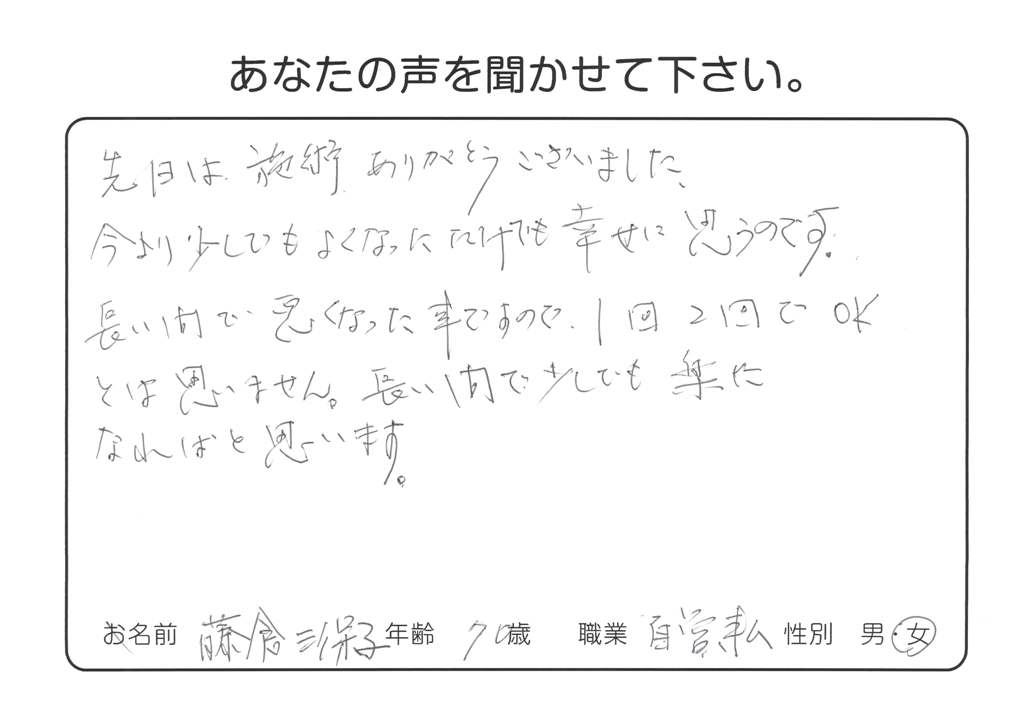 あなたの声を聞かせて下さい。
先日は、施術、ありがとうございました、
今より少しでもよくなっただけでも幸せに思うのです。
長い間で悪くなった事ですので、1回2回でOK
とは思いません。長い間で少しでも楽に
なればと思います。
お名前 藤倉三保子 年齢 70歳 職業 自営 性別 男・女